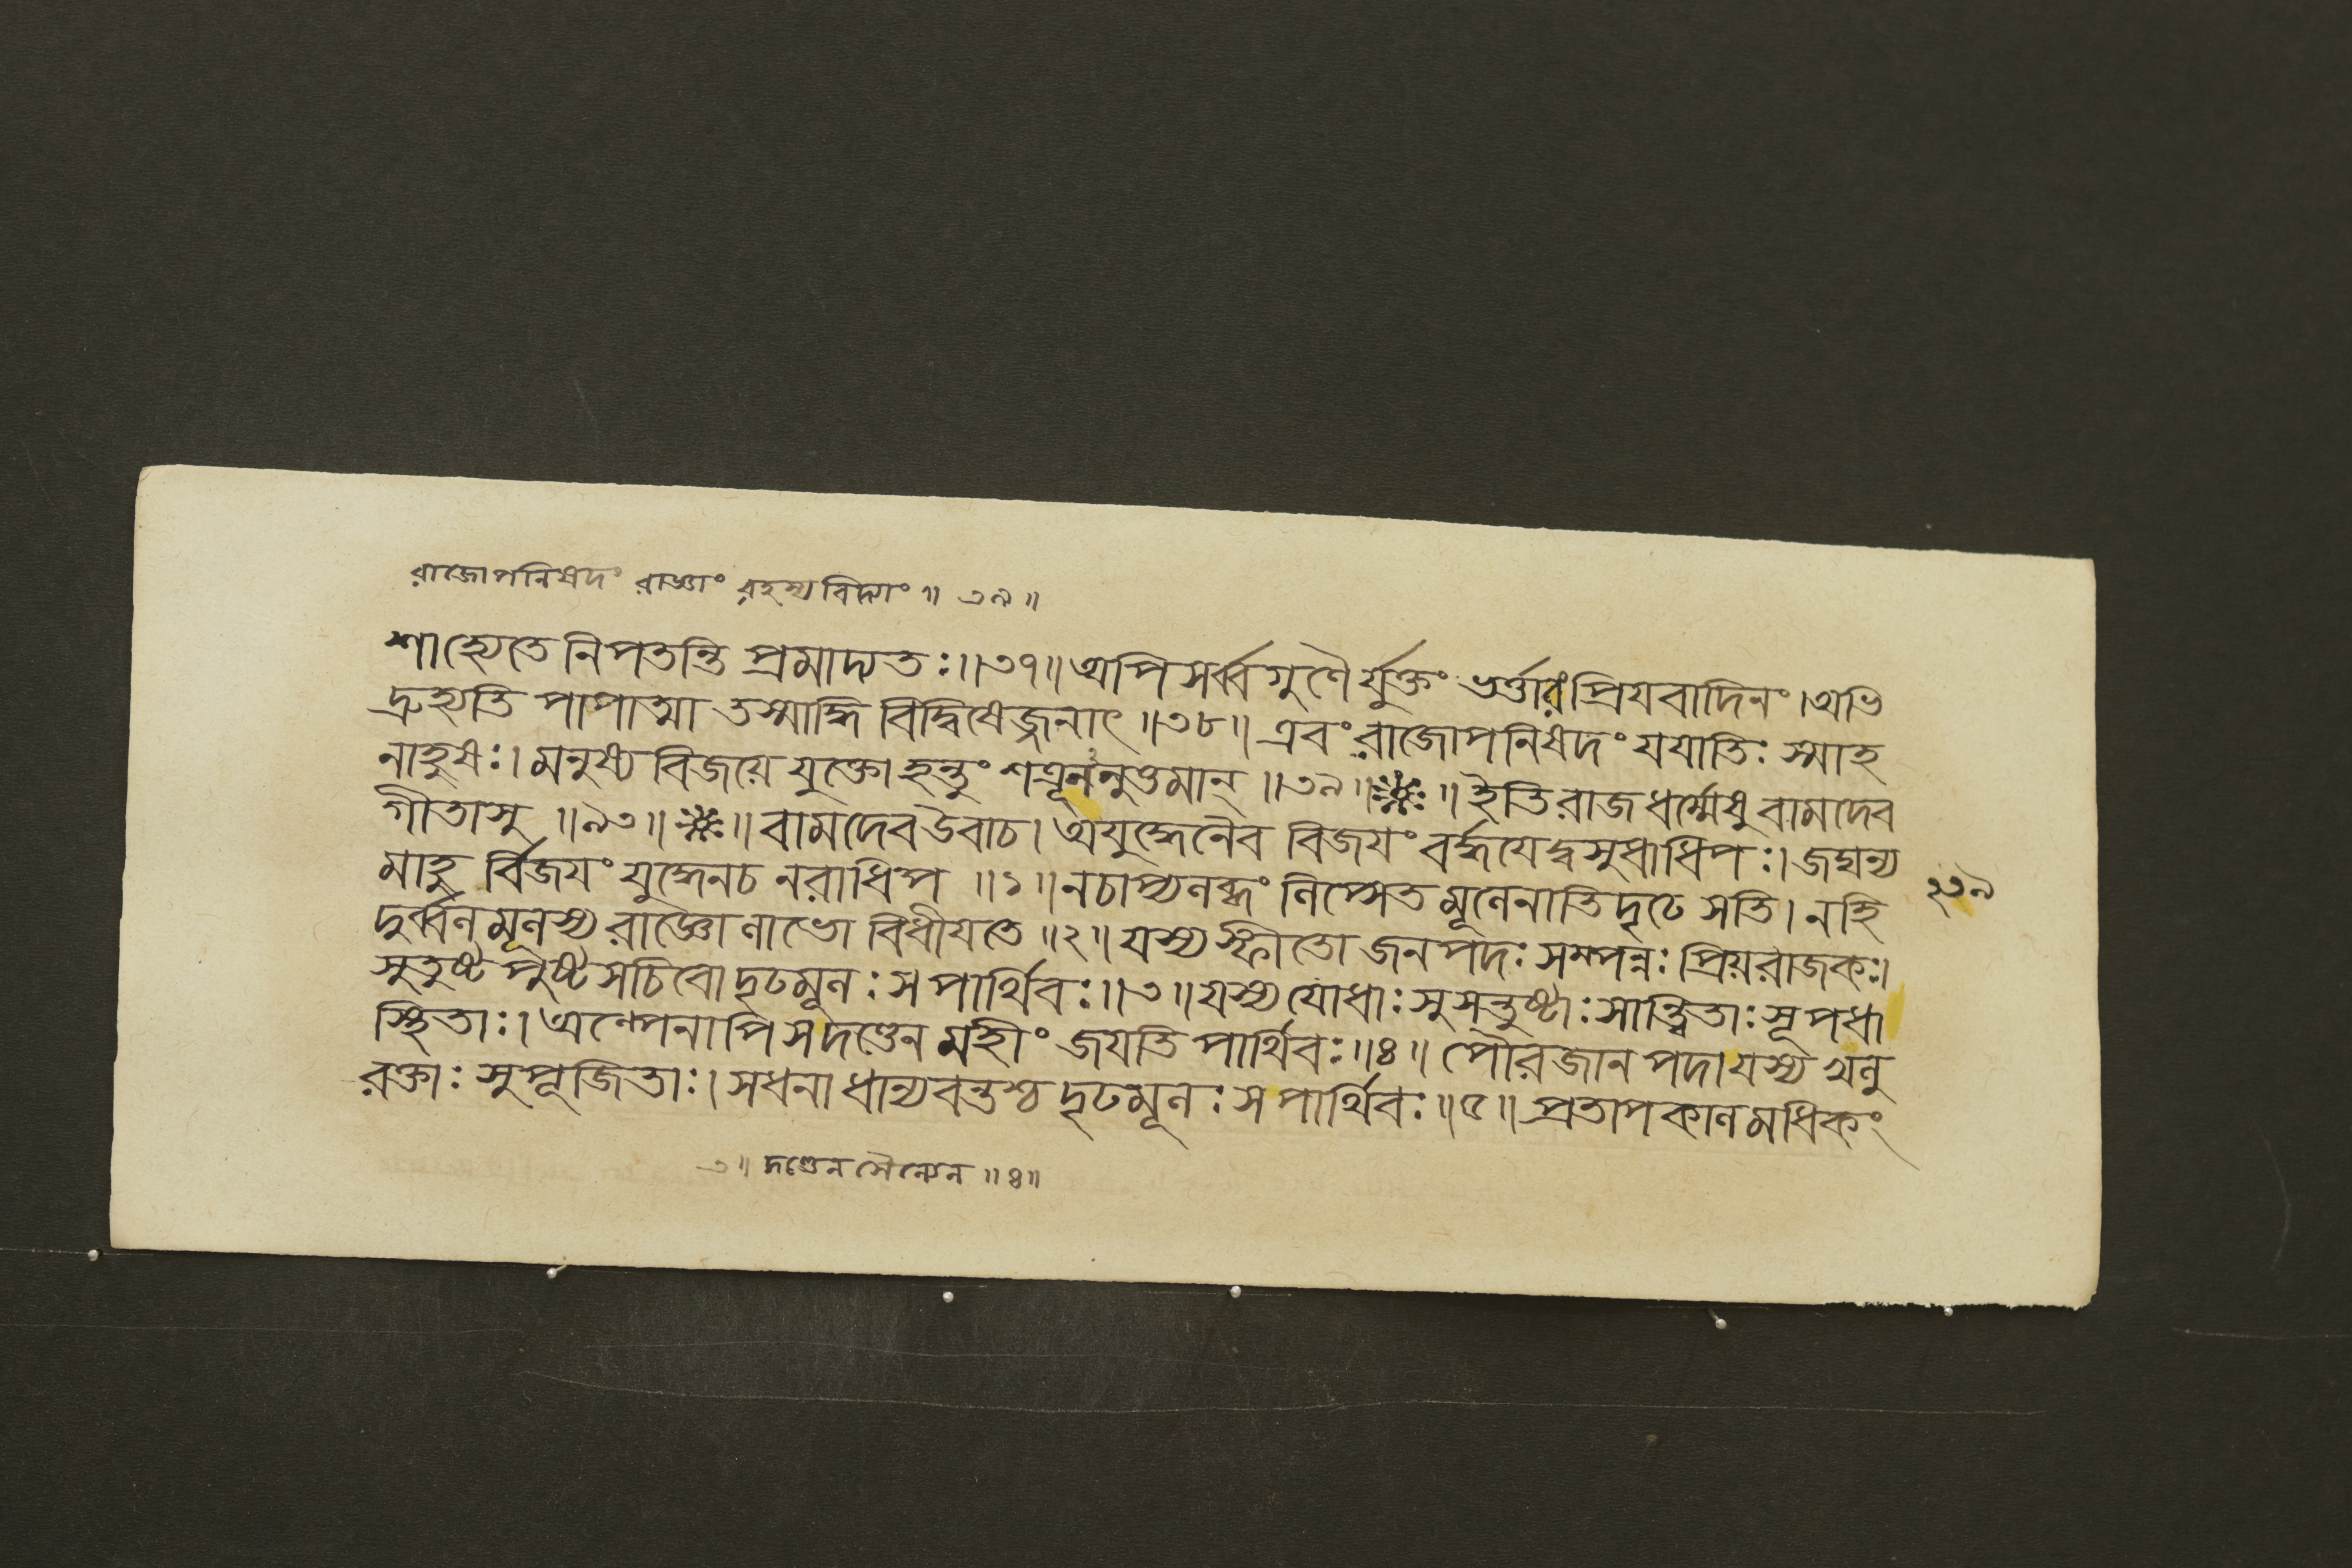 রাজোপনিষদং রাজ্ঞাং রহস্যবিদ্যাং ॥ ৩৯ ॥
শাহ্যেতে নিপতন্তি প্রমাদ্যতঃ ॥ ৩৭ ॥ অপি সর্ব্বগুণৈর্যুক্তং ভর্ত্তারং প্রিযবাদিনং । অভি
দ্রুহ্যতি পাপাত্মা তস্মাদ্ধি বিদ্বিষেজ্জনাৎ ॥ ৩৮ ॥ এবং রাজোপনিষদং যযাতিঃ স্মাহ
নাহুষঃ । মনুষ্য বিজয়ে যুক্তো হন্তুং শত্রূননুত্তমান্ ॥ ৩৯ ॥ ※ ॥ ইতি রাজধর্ম্মেষু বামদেব
গীতাসু ॥ ৯৩ ॥ ※ ॥ বামদেব উবাচ । অযুদ্ধেনৈব বিজযং বর্দ্ধযেদ্বসুধাধিপঃ । জঘন্য
মাহু র্বিজযং যুদ্ধেনচ নরাধিপ ॥ ১ ॥ নচাপ্যলব্ধং লিপ্সেত মূলেনাতিদৃঢে সতি । নহি
দুর্ব্বলমূলস্য রাজ্ঞো লাভো বিধীযতে ॥ ২ ॥ যস্য স্ফীতো জনপদঃ সম্পন্নঃ প্রিয়রাজকঃ ।
সুতুষ্ট পুষ্টসচিবো দৃঢমূলঃ স পার্থিবঃ ॥ ৩ ॥ যস্য যোধাঃ সুসন্তুষ্টাঃ সান্ত্বিতাঃ সূপধা
স্থিতাঃ । অল্পেনাপি স দণ্ডেন মহীং জযতি পার্থিবঃ ॥ ৪ ॥ পৌরজানপদা যস্য অনু
রক্তাঃ সুপূজিতাঃ । সধনা ধান্যবন্তশ্চ দৃঢমূলঃ স পার্থিবঃ ॥ ৫ ॥ প্রতাপকালমধিকং
২৩৯
৩ ॥ দণ্ডেন সৈন্যেন ॥ ৪ ॥